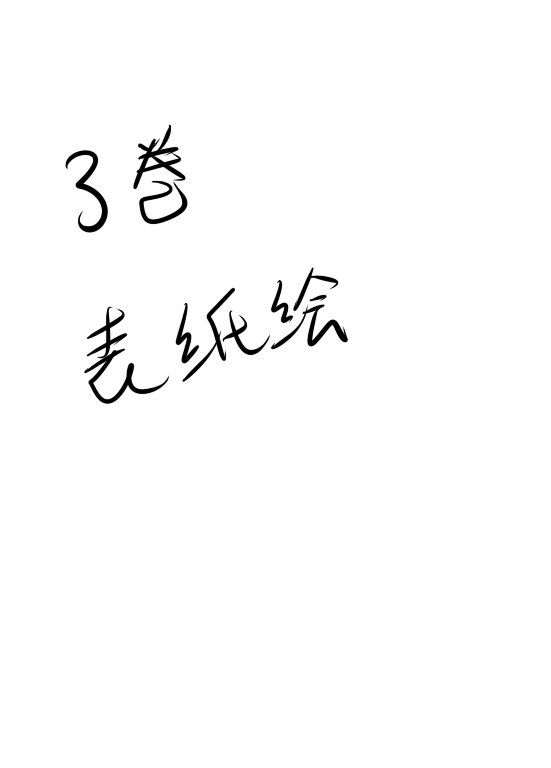 3巻
表紙絵